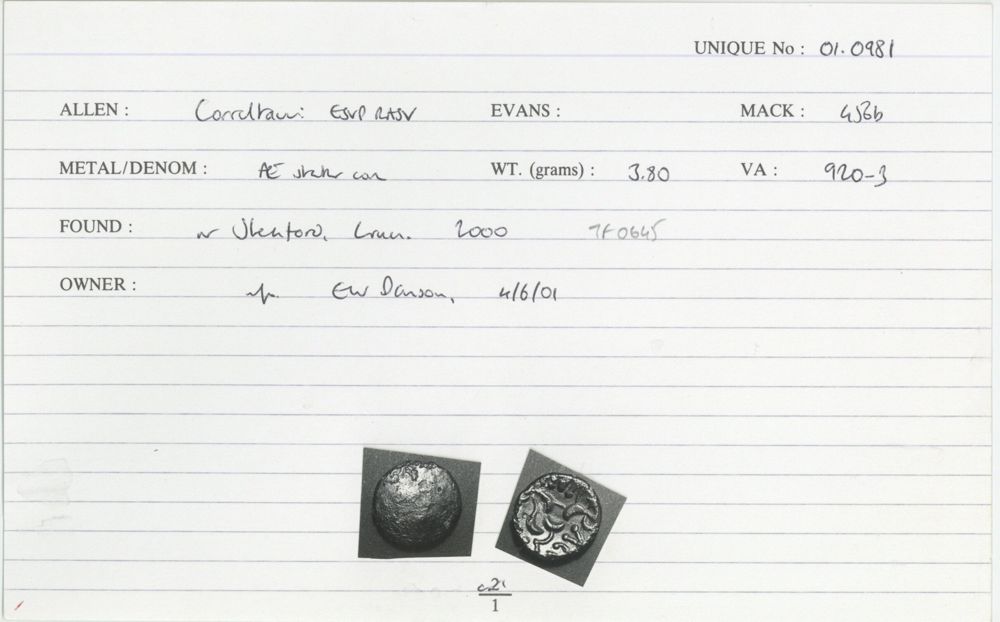 UNIQUE No : 01.0981
ALLEN : Corieltauvi ESVP RASV EVANS : MACK : 456b
METAL/DENOM : Æ stater core WT. (grams) : 3.80 VA : 920-3
FOUND : nr Sleaford, Lincs. 2000 TF0645
OWNER : EW Danson, 4/6/01
1